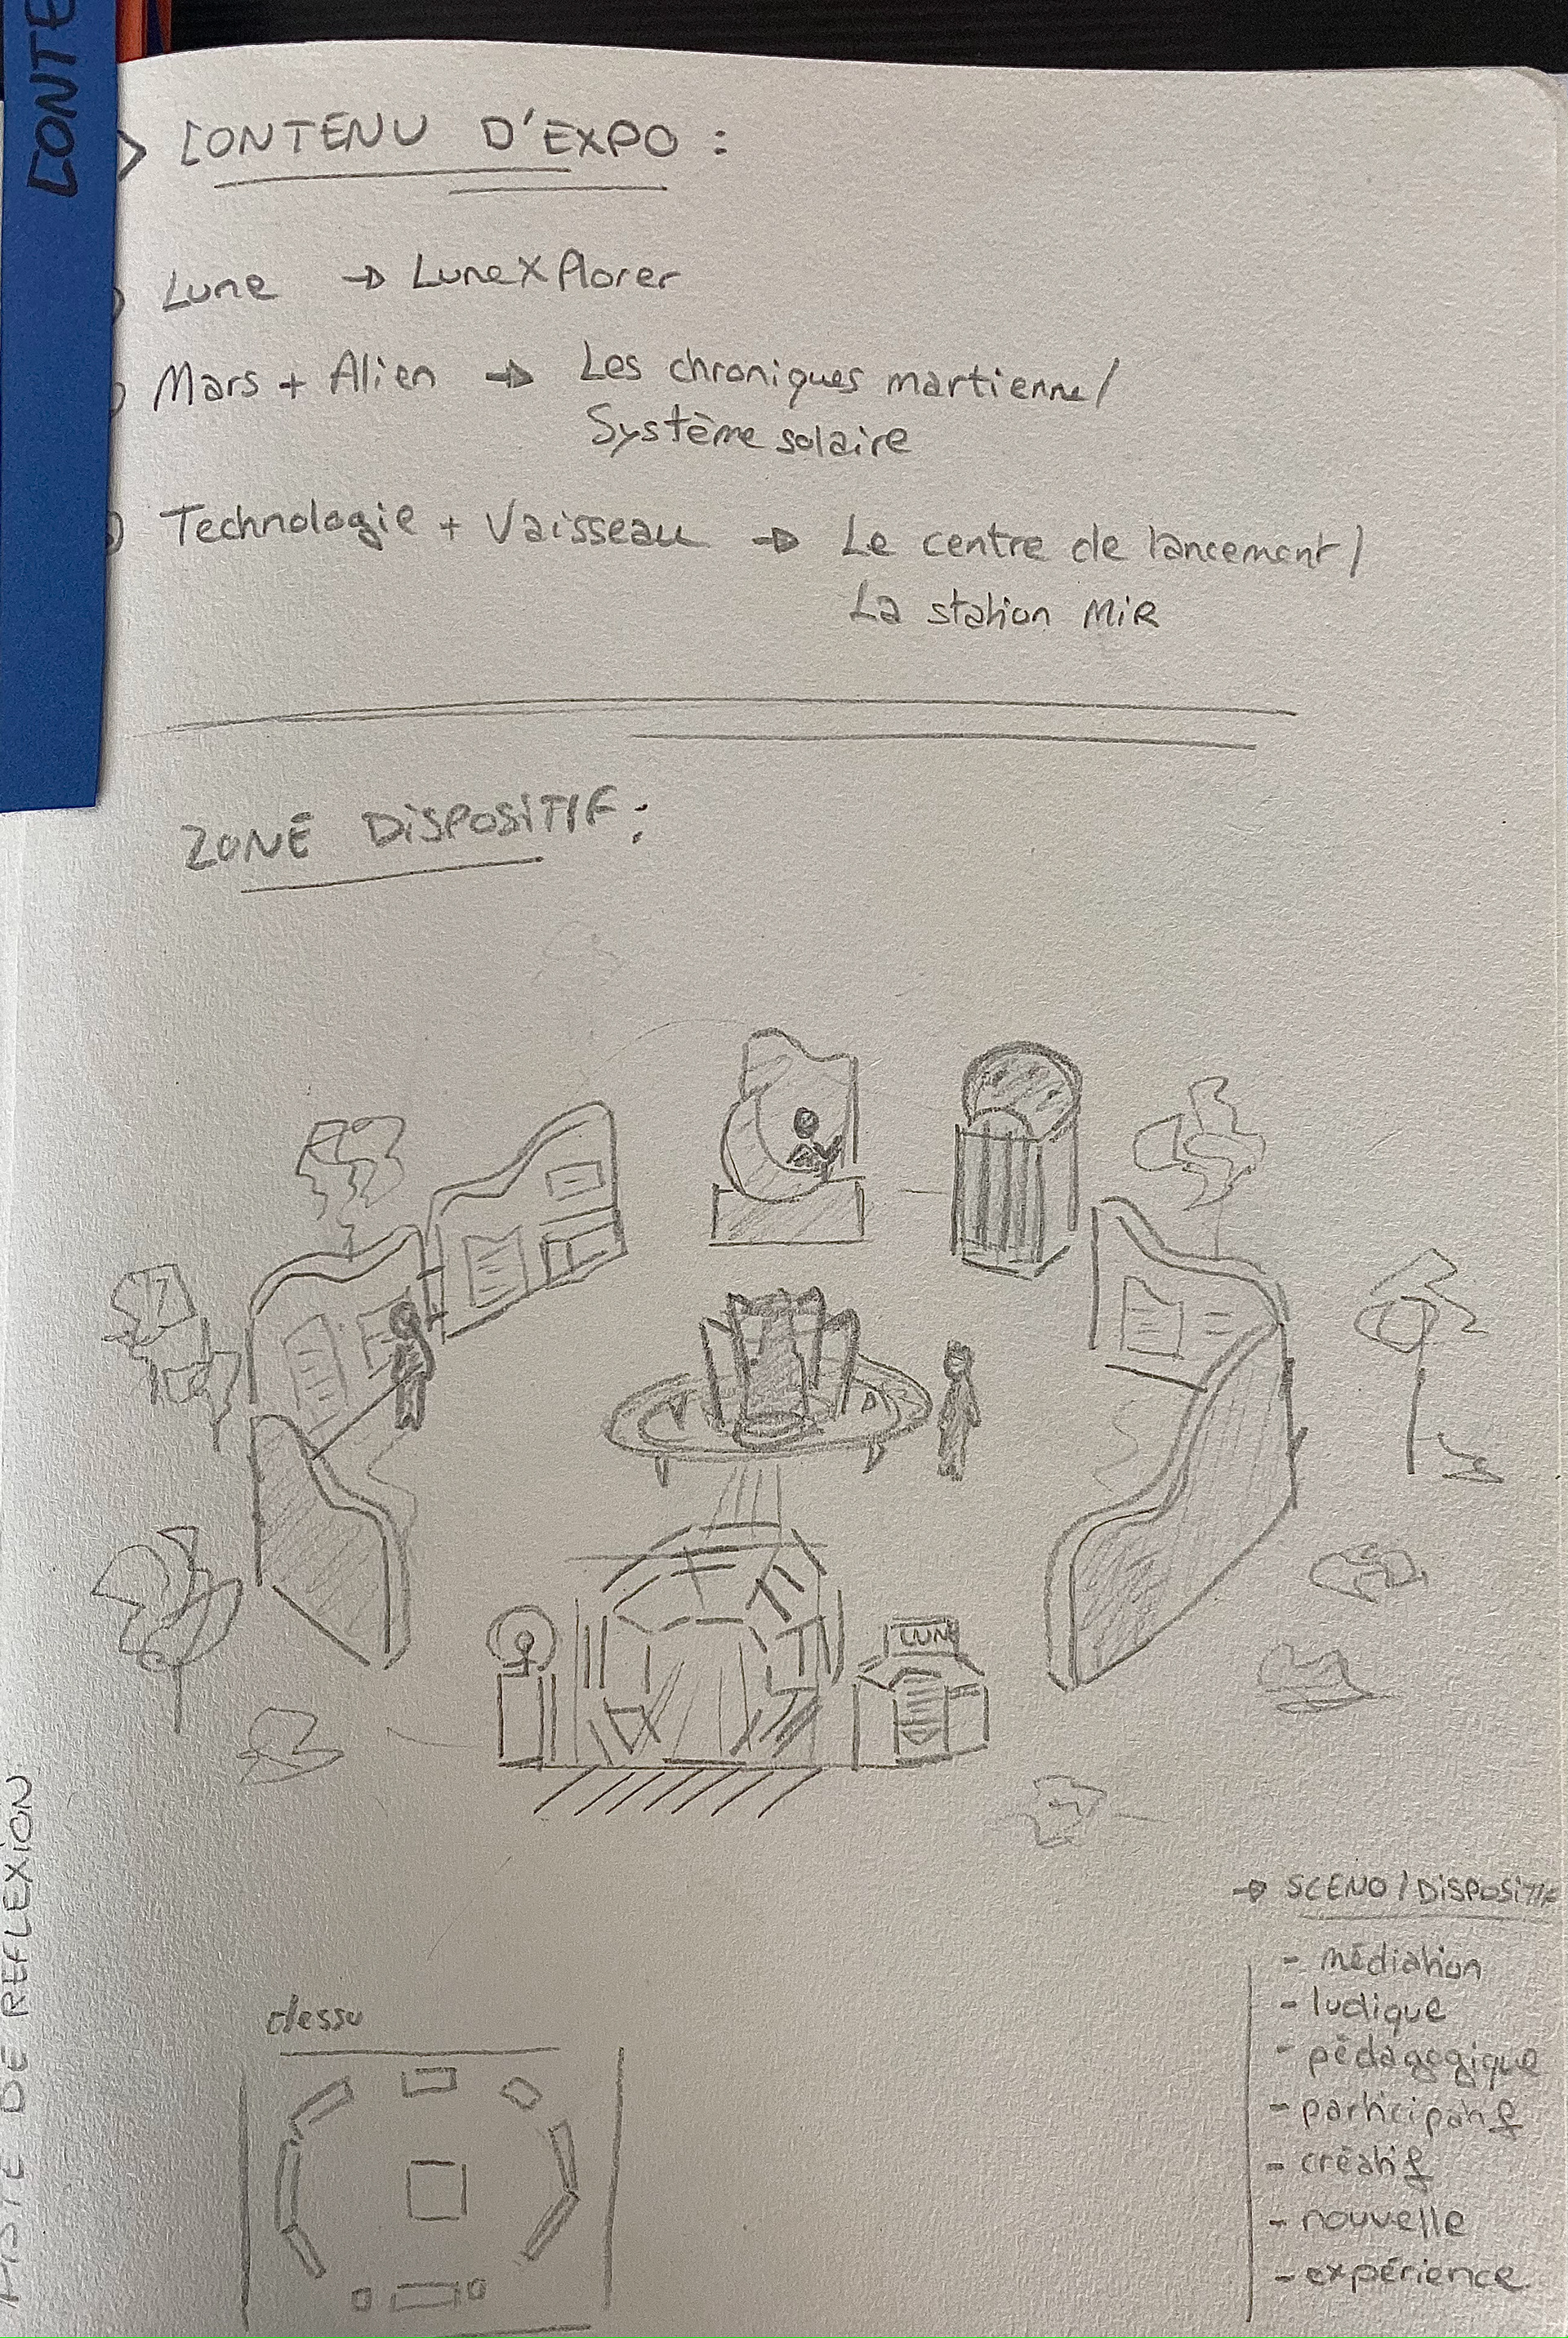 CONTE
> CONTENU D'EXPO :
Lune → LuneXPlorer
Mars + Alien → Les chroniques martienne/
Système solaire
Technologie + Vaisseau → Le centre de lancement/
La station MiR
ZONE DISPOSITIF :
LUNE
→ SCENO/DISPOSITIF
- médiation
- ludique
- pédagogique
- participatif
- créatif
- nouvelle
- expérience
dessu
PISTE DE REFLEXION